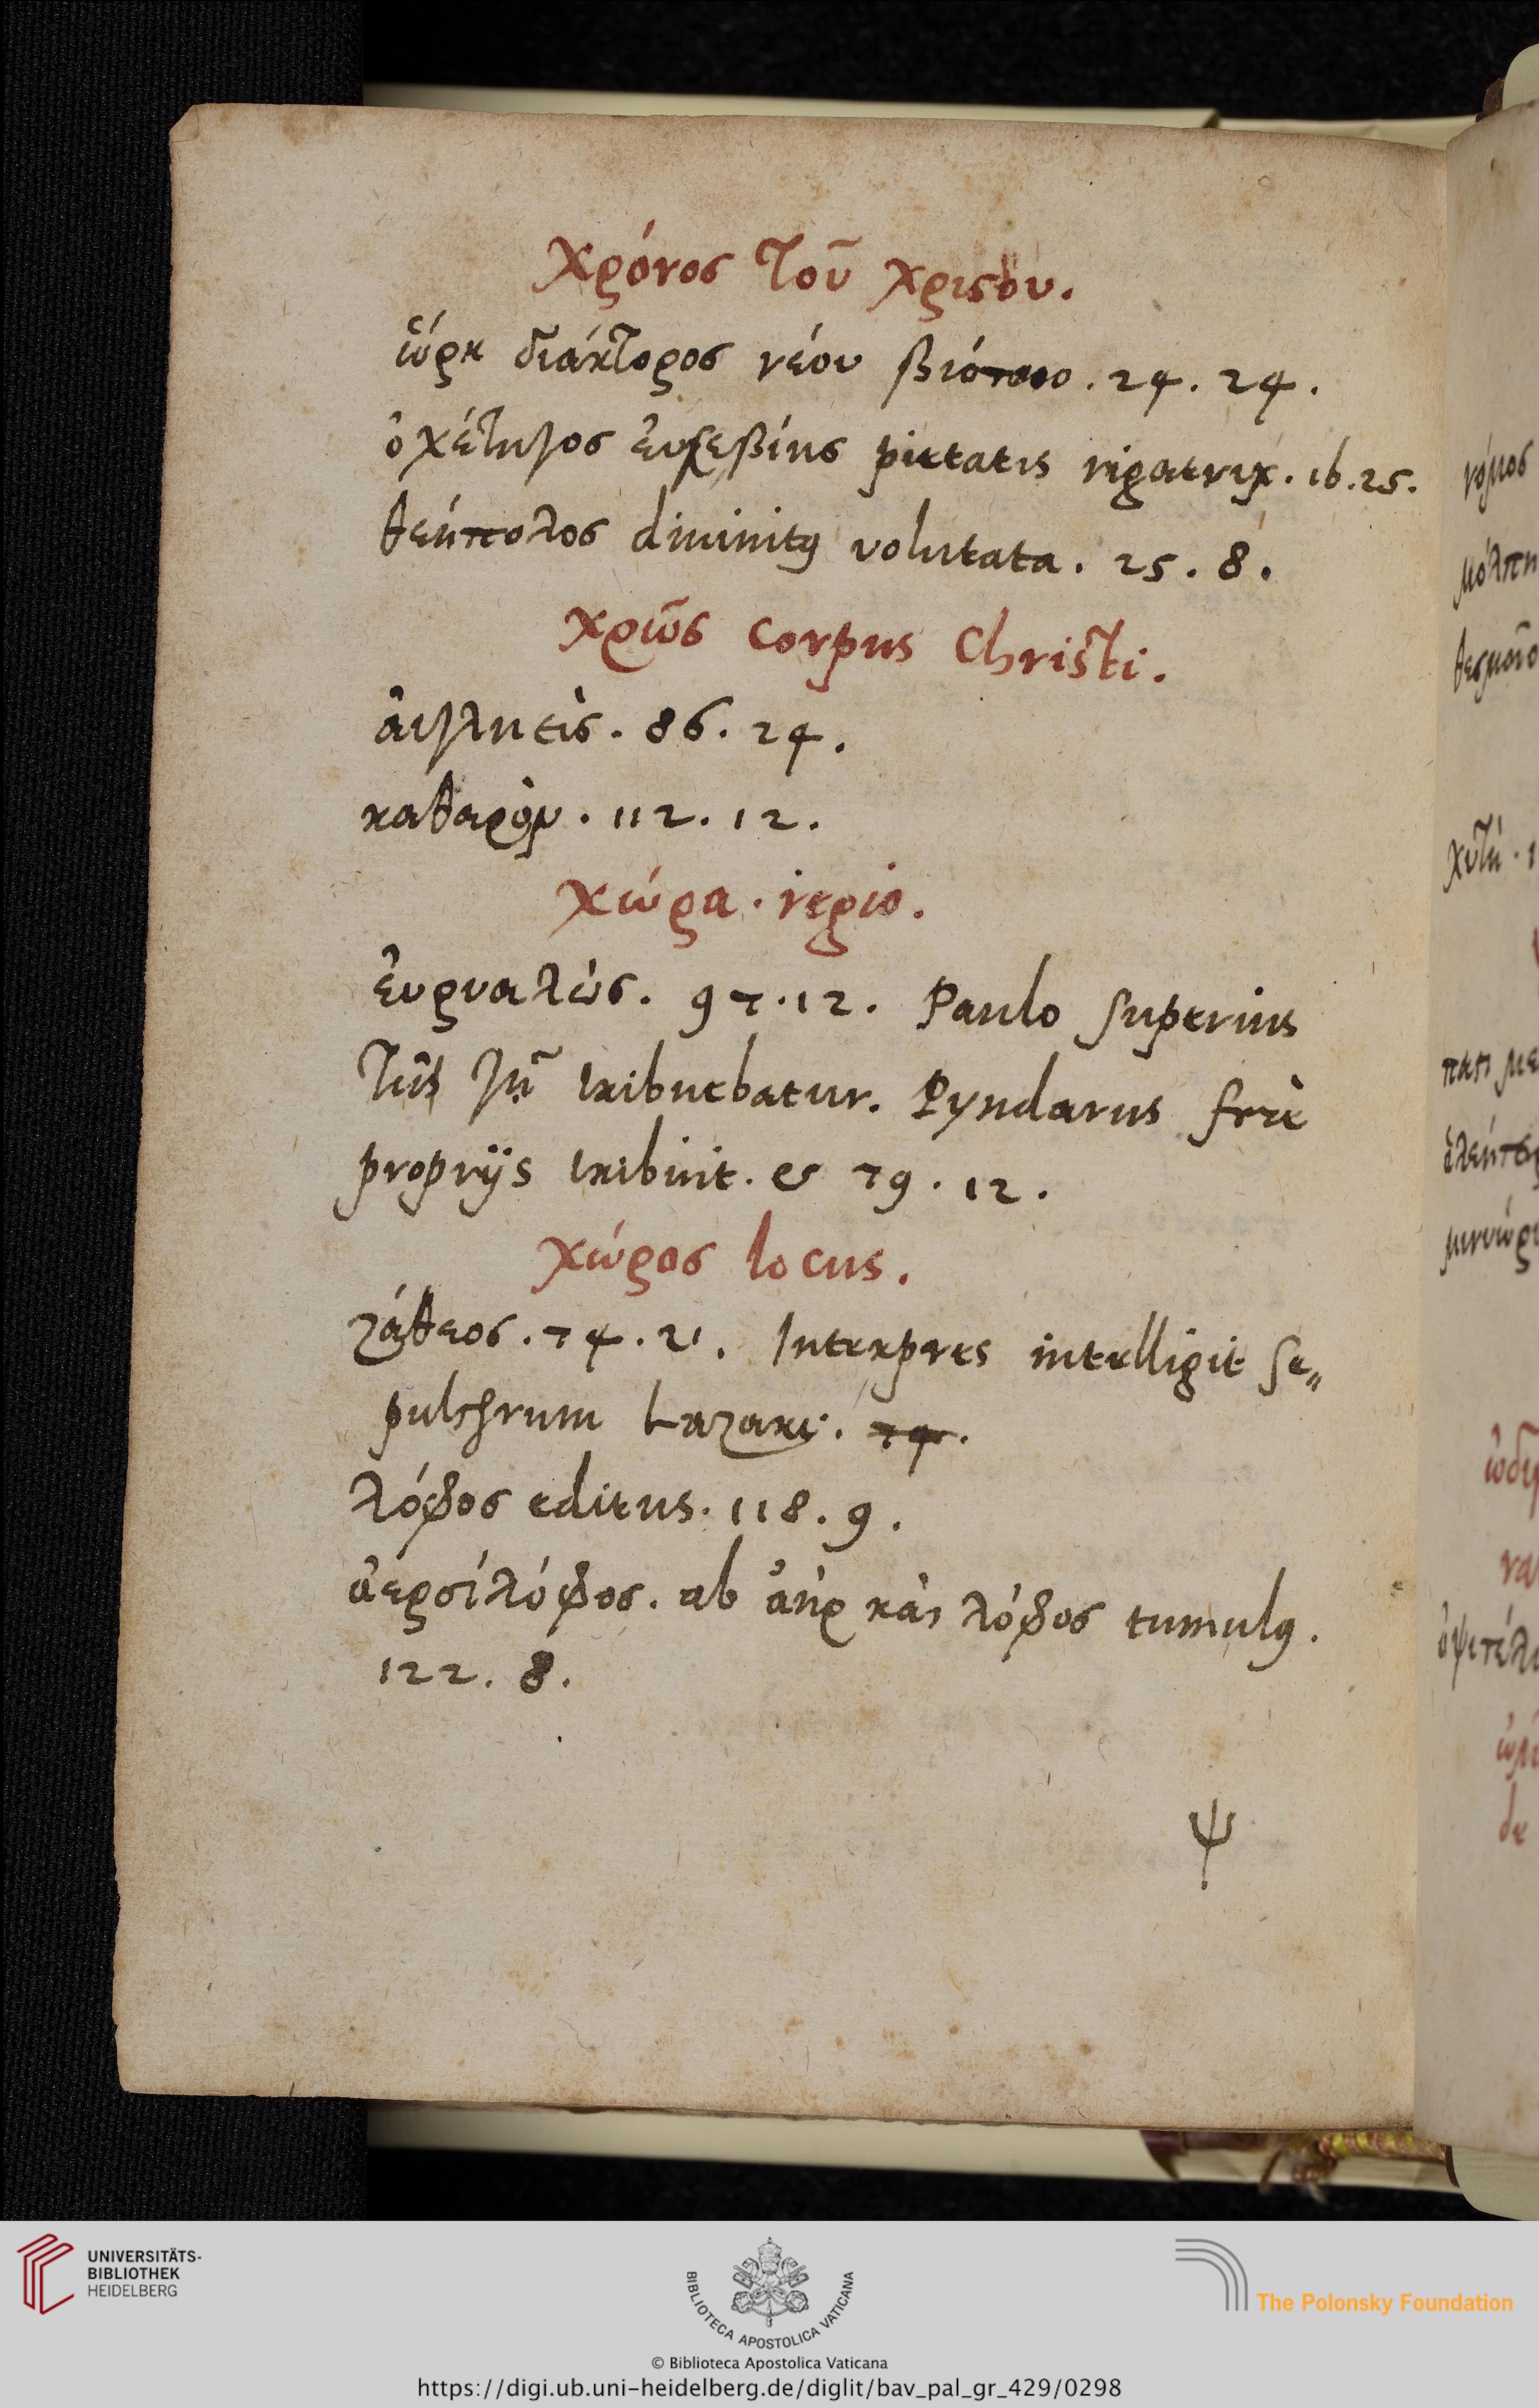 χρόνος τοῦ χριστου.
ὥρη διάκτορος νέου βιότοιο. 24. 24.
ὀχέτηγος ἐυσεβίης pietatis rigatrix. ib. 25.
θεήπολος diuinitꝯ volutata. 25. 8.
χρῶς corpus Christi.
ἀιγλητις. 86. 24.
καθαρὸν. 112. 12.
χώρα. regio.
ἐυρυαλὼς. 97. 12. Paulo superius
τῆς γῆ tribuebatur. Pyndarus
proprijs tribuit. & 79. 12.
χώρος locus.
ζάθεος. 74. 21. Interpres intelligit se„
pulchrum Lazari. 74.
λόφος editus. 118. 9.
ἀερσίλόφος. ab ἀὴρ κὰι λόφος tumulꝯ.
122. 8.
ψ
νόμος
μόλπη
ὠδι
UNIVERSITÄTS-
BIBLIOTHEK
HEIDELBERG
BIBLIOTECA APOSTOLICA VATICANA
The Polonsky Foundation
© Biblioteca Apostolica Vaticana
https://digi.ub.uni-heidelberg.de/diglit/bav_pal_gr_429/0298